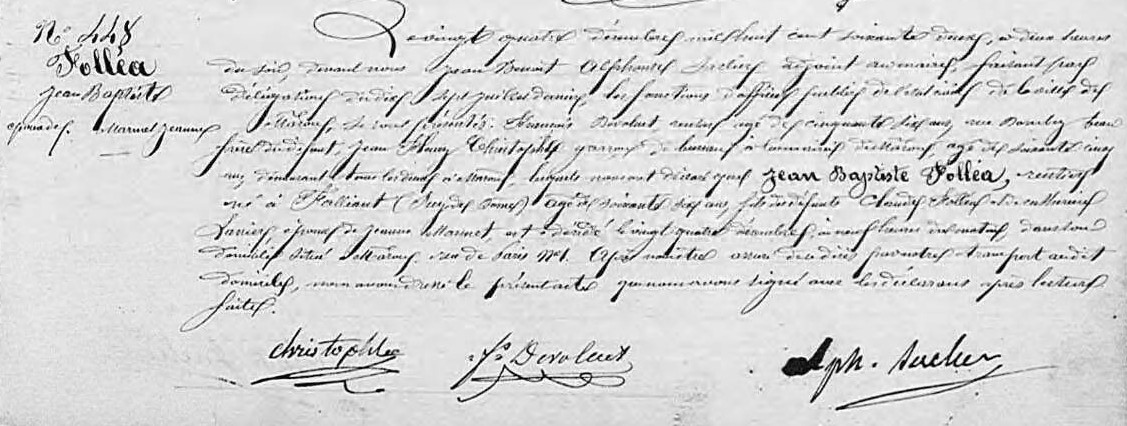 N° 448
Folléa
Jean Baptiste
époux de
Marmet Jeanne
Le vingt quatre décembre mil huit cent soixante deux, à deux heures
du soir, devant nous Jean Benoit Alphonse adjoint au maire, faisant par
délégation du dix sept juillet dernier, les fonctions d'officier public de l'état civil de la ville de
Mâcon, se sont présentés François Devoluet, rentier âgé de cinquante six ans, rue beau
frère du défunt, Jean Henry Christophe garçon de bureau à la mairie de Mâcon âgé de soixante cinq
ans, demeurant tous les deux à Mâcon, lesquels nous ont déclaré que Jean Baptiste Folléa, rentier
né à (Puy de Dome) âgé de soixante six ans, fils de défunts Claude Folléa et de Catherine
époux de Jeanne Marmet, est décédé le vingt quatre décembre, à neuf heures du matin, dans son
domicile situé à Mâcon, rue de Paris N° 1. Après nous être assuré du décès par notre transport au dit
domicile, nous avons dressé le présent acte que nous avons signé avec les déclarans après lecture
faite.
Christophe
Fs Devoluet
Alph.